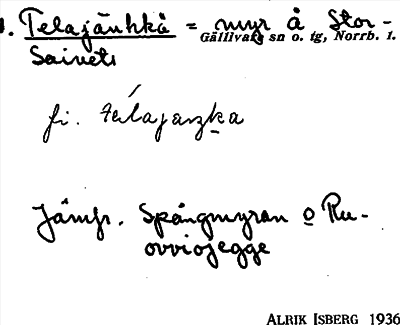 1. Telajänkkä = myr å Stor-
Gällivare sn o. tg, Norrb. l.
Saivets
fi. telajaŋka
Jämfr. Spångmyran o Ru-
ovviojegge
ALRIK ISBERG 1936